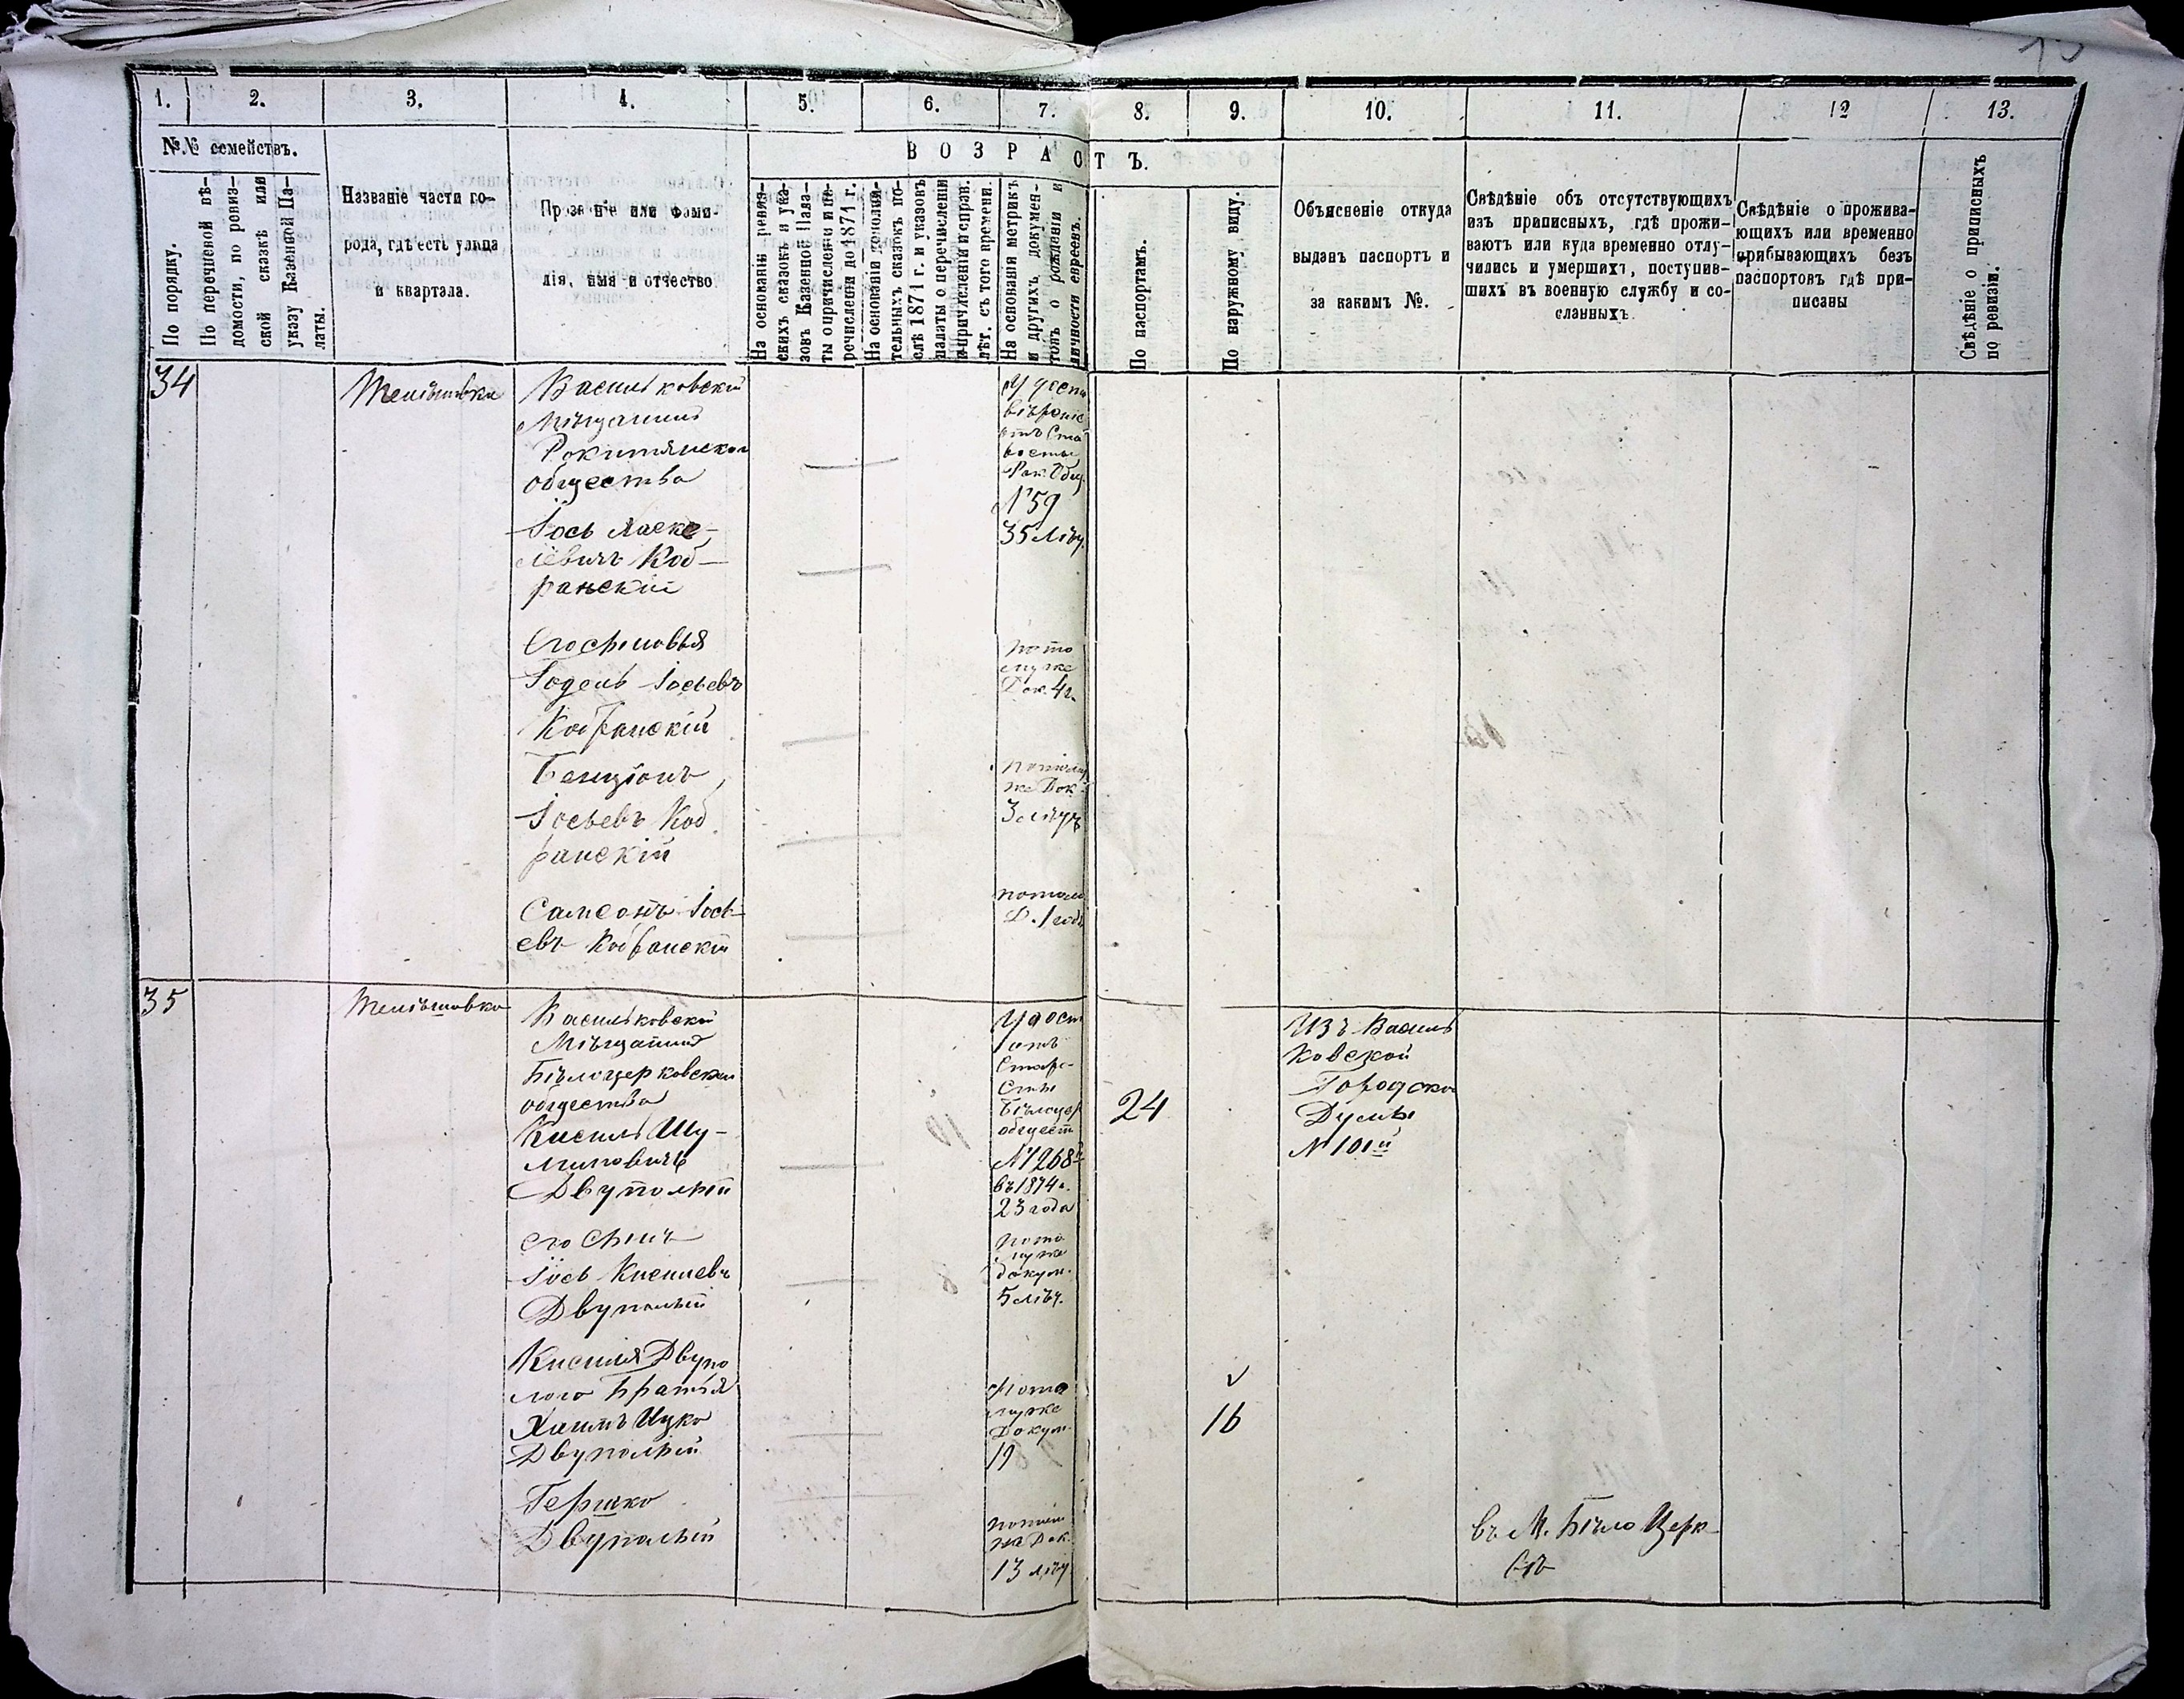 1.
2.
3.
4.
5.
6.
7.
8.
9.
10.
11.
12
13.
№№ семействъ.
ВОЗРАСТЪ.
По порядку.
По перечневой вѣ-
домости, по ревиз-
ской сказкѣ или
указу Казенной Па-
латы.
Названіе части го-
рода, гдѣ есть улица
и квартала.
Прозваніе или фами-
лія, имя и отчество.
На основаніи ревиз-
скихъ сказокъ и ука-
зовъ Казенной Пала-
ты о причисленіи и пе-
речисленіи до 1871 г.
На основаніи дополни-
тельныхъ сказокъ по-
слѣ 1871 г. и указовъ
палаты о перечисленіи
и причисленіи и справ.
лѣт. съ того времени.
На основаніи метрикъ
и другихъ докумен-
товъ о рожденіи и
личности евреевъ.
По паспортамъ.
По наружному виду.
Объясненіе откуда
выданъ паспортъ и
за какимъ №.
Свѣдѣніе объ отсутствующихъ
изъ приписныхъ, гдѣ прожи-
ваютъ или куда временно отлу-
чились и умершихъ, поступив-
шихъ въ военную службу и со-
сланныхъ.
Свѣдѣніе о прожива-
ющихъ или временно
прибывающихъ безъ
паспортовъ гдѣ при-
писаны
Свѣдѣніе о приписныхъ
по ревизіи.
34
Васильковскій
Мѣщанинъ
Рокитянскаго
общества
Іось Хаске-
левичъ Коб-
ранскій
№ 59
35 лѣт.
Его сыновья
Іодель Іосьевъ
Кобранскій
по то
му же
Док. 4 г.
Бенціонъ
Іосьевъ Коб
ранскій
по тому
же Док.
3 лѣтъ
Самсонъ Іось-
евъ Кобранскій
по тому
Д. 1 годъ
35
Васильковскій
Мѣщанинъ
Бѣлоцерковскаго
общества
Кисиль Шу-
лимовичъ
Двуполый
Удост
отъ
Старо-
сты
Бѣлоцер
общест
№ 1268й
въ 1874 г.
23 года
24
Изъ Василь
ковской
Городской
Думы
№ 101й
его сынъ
Іось Кисилевъ
Двуполый
по то
му же
докум.
5 лѣт.
Кисиля Двупо
лого Братья
Хаимъ Ицко
Двуполый
По то
му же
Докум.
19
16
Гершко
Двуполый
по тому
же Док.
13 лѣт
въ М. Бѣло Церк-
вѣ